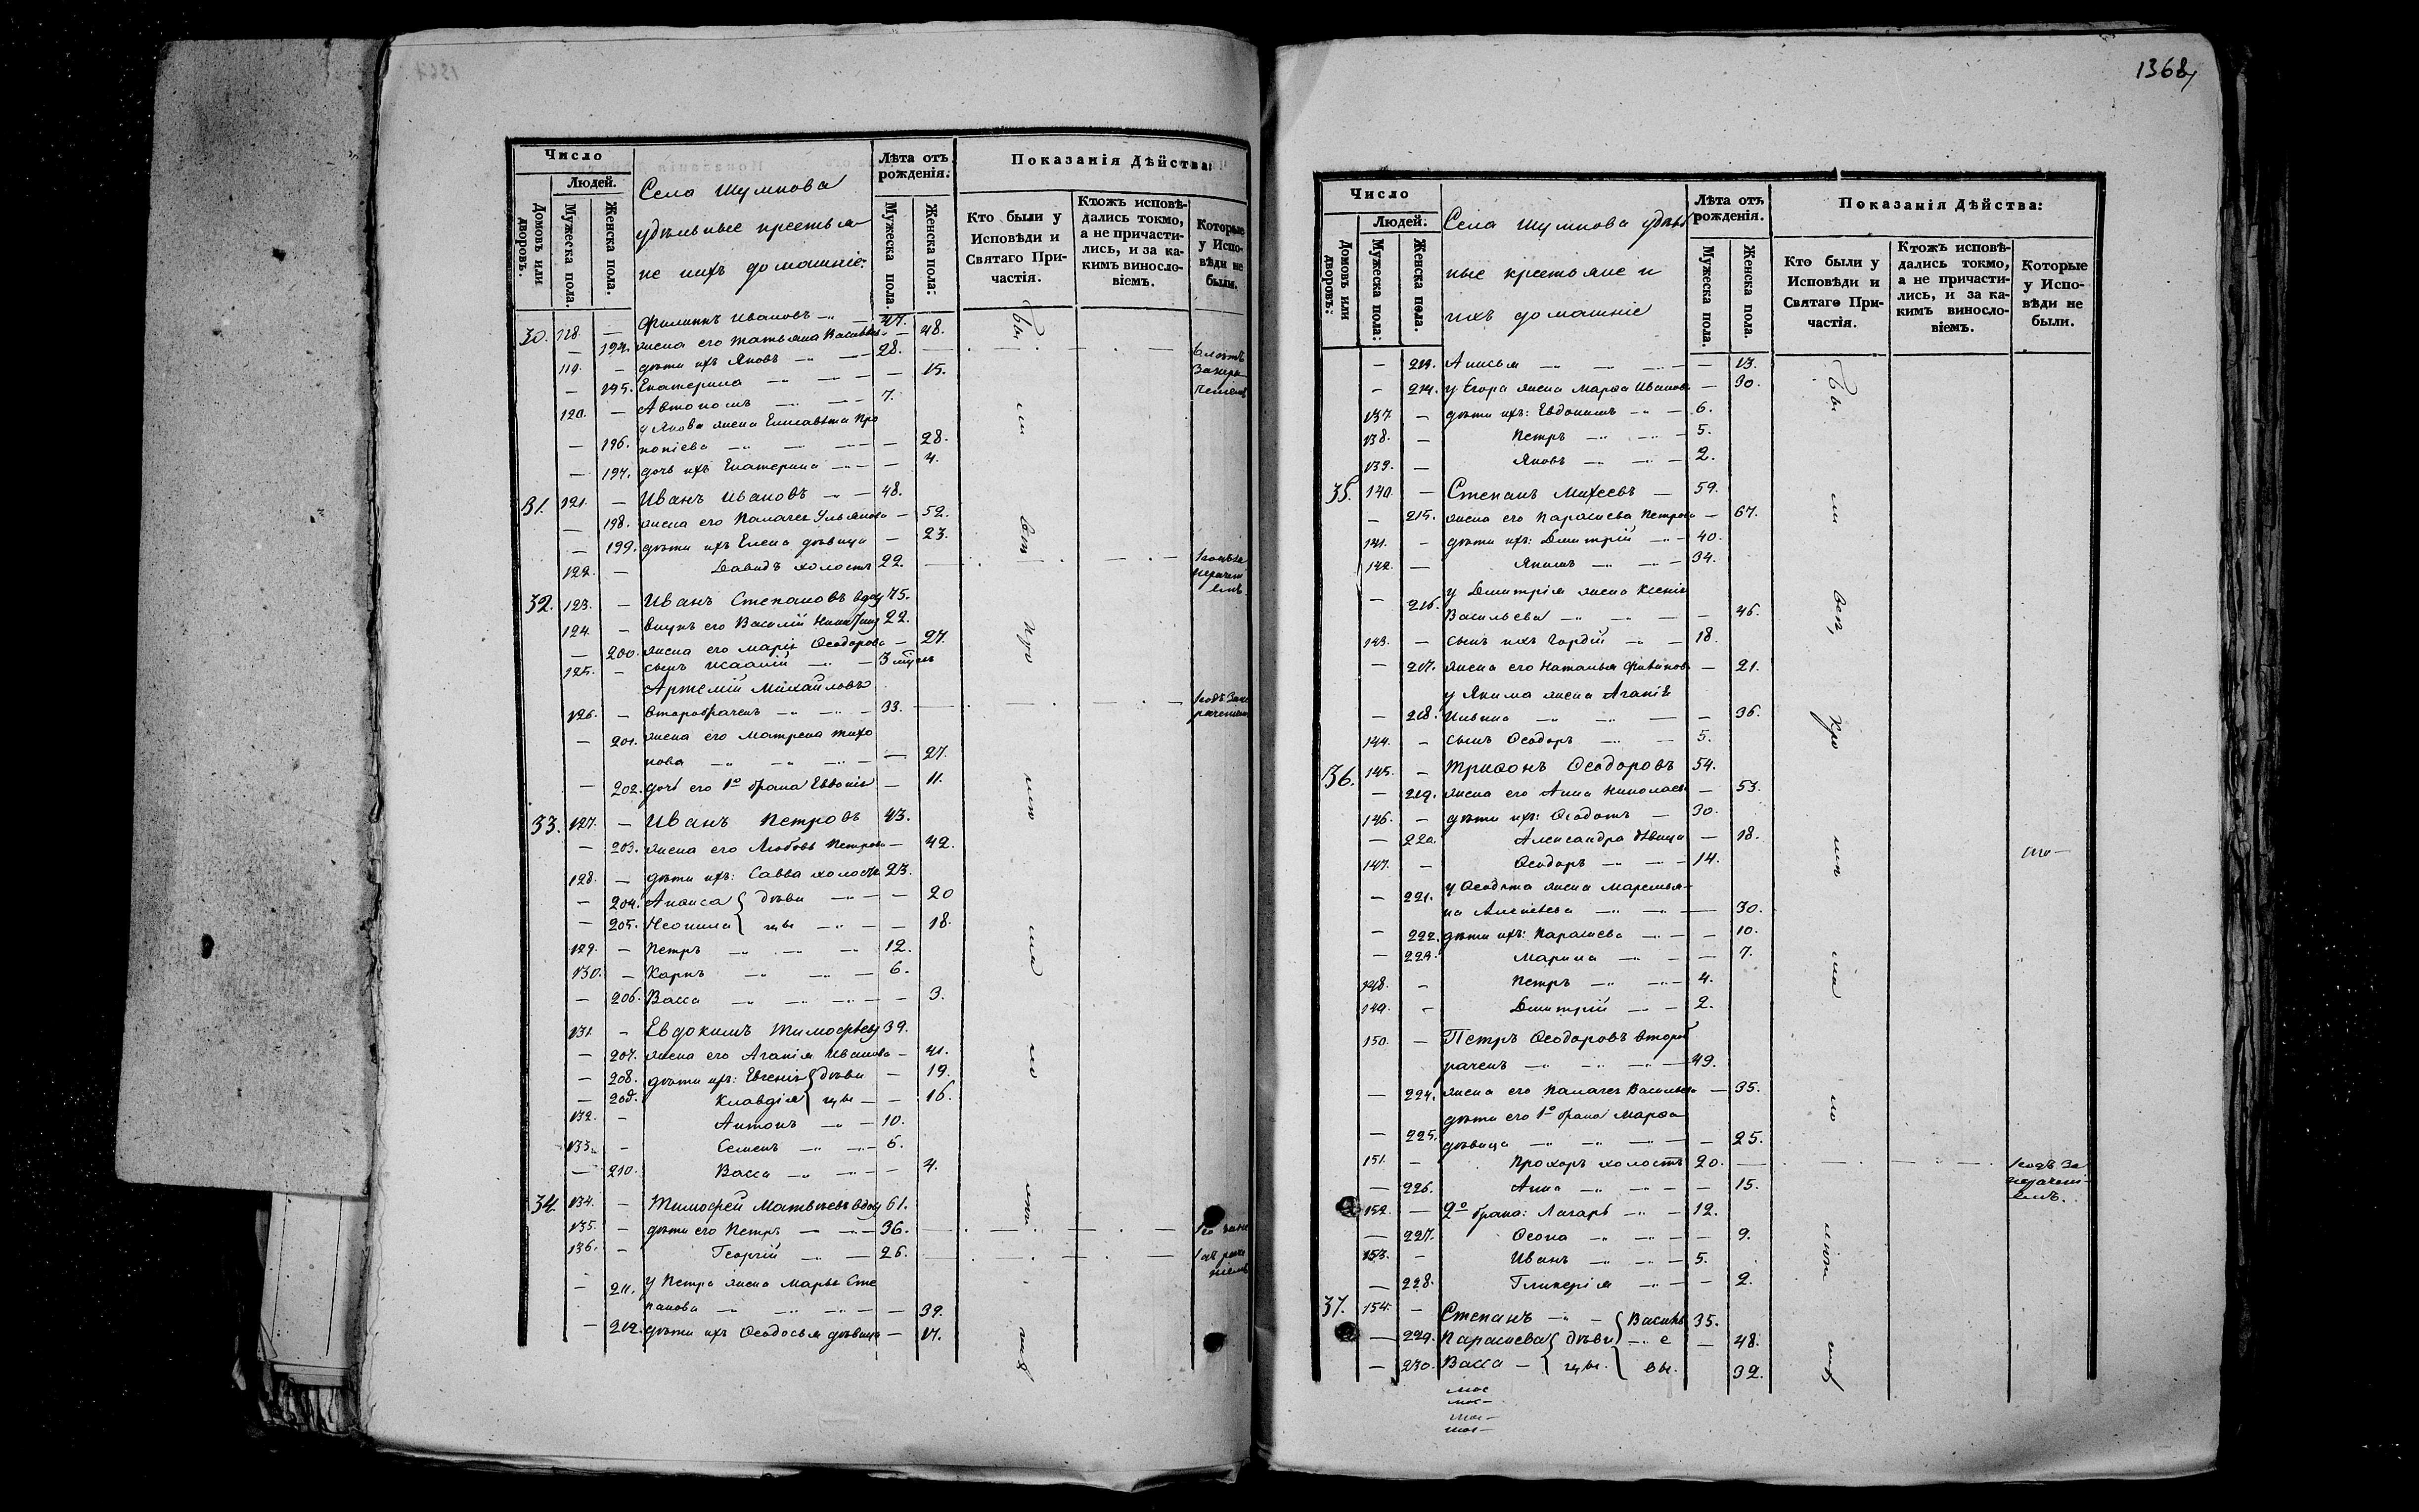 Число
Людей.
Домовъ или дворовъ.
Мужеска пола.
Женска пола.
Села Шумкова
удѣльные крестья
не ихъ домашніе:
Лѣта отъ рожденія:
Мужеска пола.
Женска пола:
Показанія Дѣйства:
Кто были у Исповѣди и Святаго Причастія.
Ктожъ исповѣдались токмо, а не причастились, и за какимъ винословіемъ.
Которые у Исповѣди не были.
30. 118. — Филиппъ Ивановъ 47.
— 194. жена его Татьяна 48.
119. — дѣти ихъ Яковъ 28.
— 195. Екатерина — 15.
120. — Автономъ 7.
у Якова жена Елисавета Про
— 196. копіева — 28.
— 197. дочь ихъ Екатерина — 4.
31. 121. — Иванъ Ивановъ 48.
— 198. жена его Палагея Ульянова — 52.
— 199. дѣти ихъ Елена дѣвица — 23.
122. — Давидъ холостъ 22.
32. 123. — Иванъ Степановъ вдов 75.
124. — внукъ его Василій 22.
— 200. жена его Марія Ѳеодорова — 27.
125. — сынъ Исаакій 3
Артемій Михайловъ
126. — второбраченъ 33.
— 201. жена его Матрена Тихо
нова — 27.
— 202. дочь его 1го брака Евѳенія — 11.
33. 127. — Иванъ Петровъ 43.
— 203. жена его Любовь Петрова — 42.
128. — дѣти ихъ: Савва холостъ 23.
— 204. Анфиса дѣви — 20
— 205. Неонила цы — 18.
129. — Петръ 12.
130. — Карпъ 6.
— 206. Васса — 3.
131. — Евдокимъ Тимофѣевъ 39.
— 207. жена его Агапія Иванова — 41.
— 208. дѣти ихъ: Евгенія дѣви — 19.
— 209. Клавдія цы — 16.
132. — Антонъ 10.
133. — Семенъ 6.
— 210. Васса — 4.
34. 134. — Тимофей Матвѣевъ вдов 61.
135. — дѣти его Петръ 36.
136. — Георгій 26.
— 211. у Петра жена Марья Сте
панова — 39.
— 212. дѣти ихъ Ѳеодосья дѣвица — 17.
1368
Число
Людей.
Домовъ или дворовъ:
Мужеска пола:
Женска пола.
Села Шумкова удѣль
ные крестьяне и
ихъ домашніе
Лѣта отъ рожденія.
Мужеска пола.
Женска пола.
Показанія Дѣйства:
Кто были у Исповѣди и Святаго Причастія.
Ктожъ исповѣдались токмо, а не причастились, и за какимъ винословіемъ.
Которые у Исповѣди не были.
— 213. Анисья — 13.
— 214. у Егора жена Марѳа Иванова — 30.
137. — дѣти ихъ: Евдокимъ — 6.
138. — Петръ — 5.
139. — Яковъ — 2.
35. 140. — Степанъ Михеевъ — 59.
— 215. жена его Параскева Петрова — 67.
141. — дѣти ихъ: Дмитрій — 40.
142. — Якимъ — 34.
у Дмитрія жена Ксенія
— 216. Васильева — 46.
143. — сынъ ихъ Гордій — 18.
— 217. жена его Наталья — 21.
у Якима жена Агапія
— 218. Ильина — 36.
144. — сынъ Ѳеодоръ — 5.
36. 145. — Трифонъ Ѳеодоровъ 54.
— 219. жена его Анна Николаева — 53.
146. — дѣти ихъ: Ѳеодотъ — 30.
— 220. Александра дѣвица — 18.
147. — Ѳеодоръ — 14.
у Ѳеодота жена Маремья-
— 221. на Алексѣева — 30.
— 222. дѣти ихъ: Параскева — 10.
— 223. Марина — 7.
148. — Петръ — 4.
149. — Дмитрій — 2.
150. — Петръ Ѳеодоровъ второб
раченъ — 49.
— 224. жена его Палагея Васильева — 35.
дѣти его 1го брака Марѳа
— 225. дѣвица — 25.
151. — Прохоръ холостъ 20.
— 226. Анна — 15.
152. — 2го брака: Лазарь — 12.
— 227. Ѳеона — 9.
153. — Иванъ — 5.
— 228. Гликерія — 2.
37. 154. — Степанъ — Василь 35.
— 229. Параскева дѣви — е — 48.
— 230. Васса — цы. вы. 32.